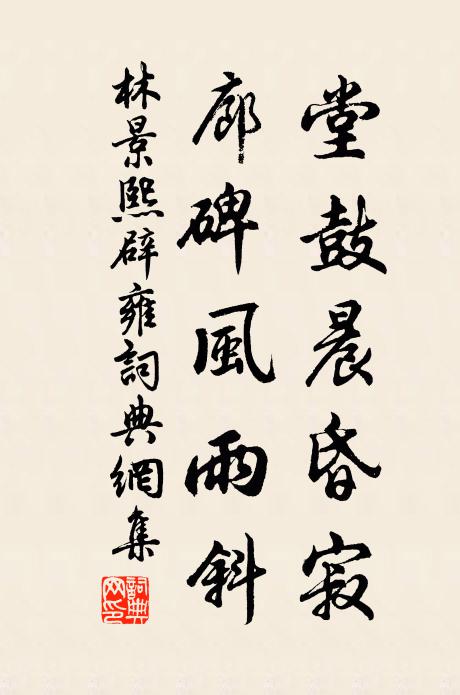 堂鼓晨昏寂
廊碑風雨斜
林景熙辟雍詞典網集
詞典網印